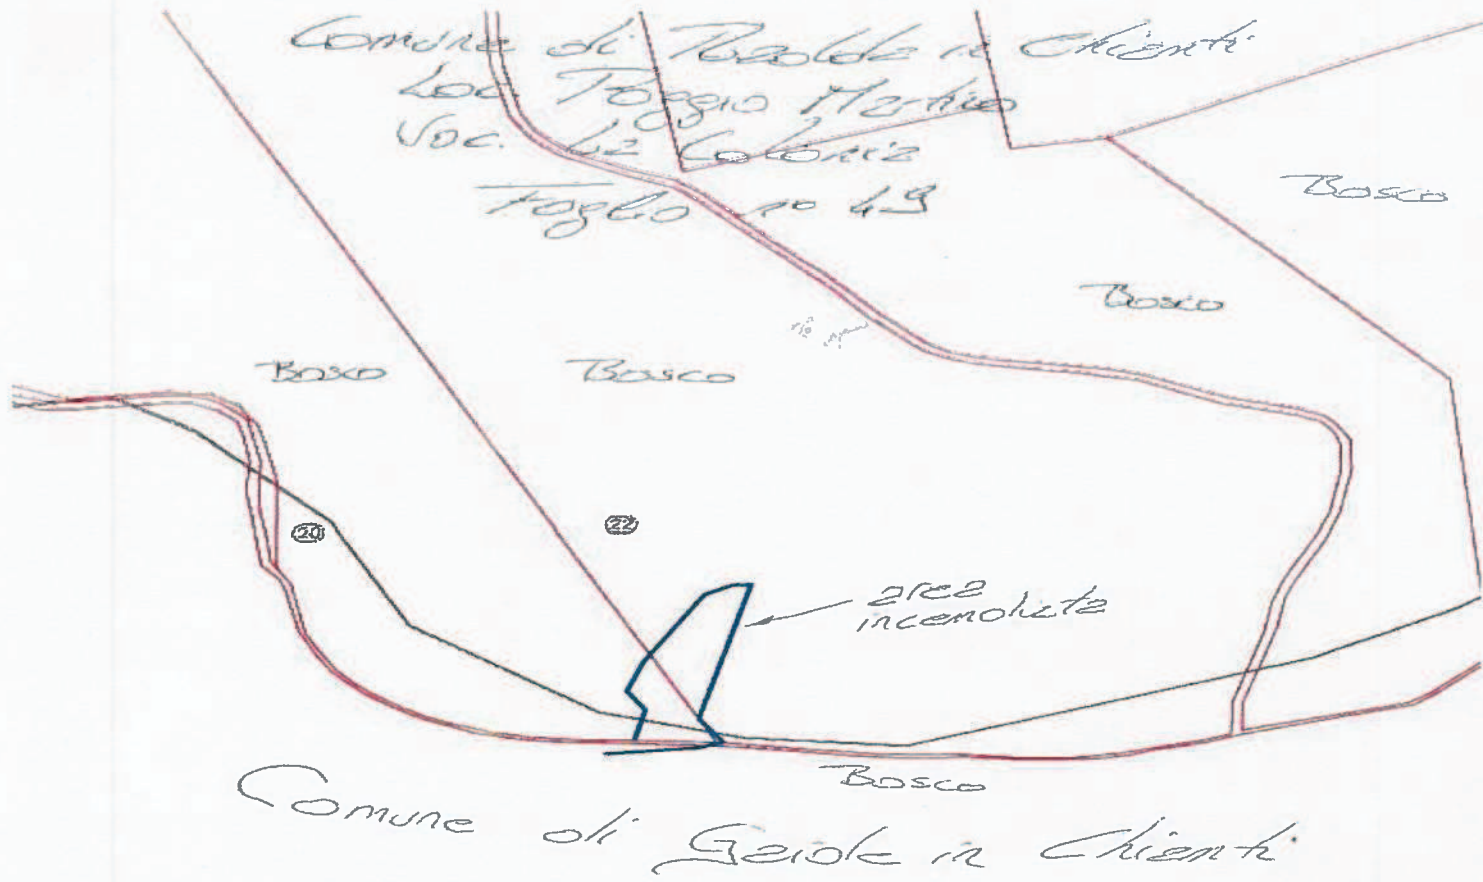 Comune di Radda in Chianti
Loc. Poggio Martino
Voc. La Colonia
Foglio n° 49
Bosco
Bosco
Bosco
Bosco
20
22
area
incendiata
Bosco
Comune di Gaiole in Chianti